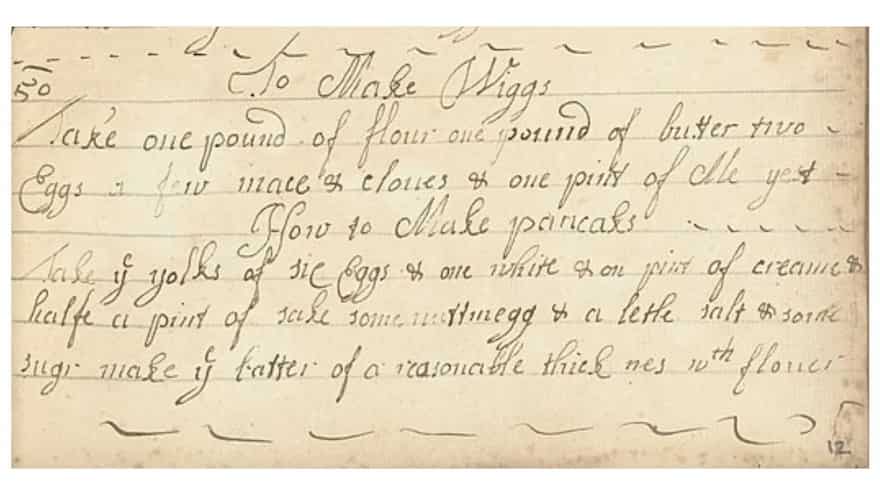 50 To Make Wiggs
Take one pound of flour one pound of butter two
Eggs a few mace & cloues & one pint of Ale yest
How to Make pancaks
Take yͤ yolks of six Eggs & one white & on pint of creame &
halfe a pint of sake some nuttmegg & a letle salt & some
sugr make yͤ batter of a reasonable thick nes wth flouer
12